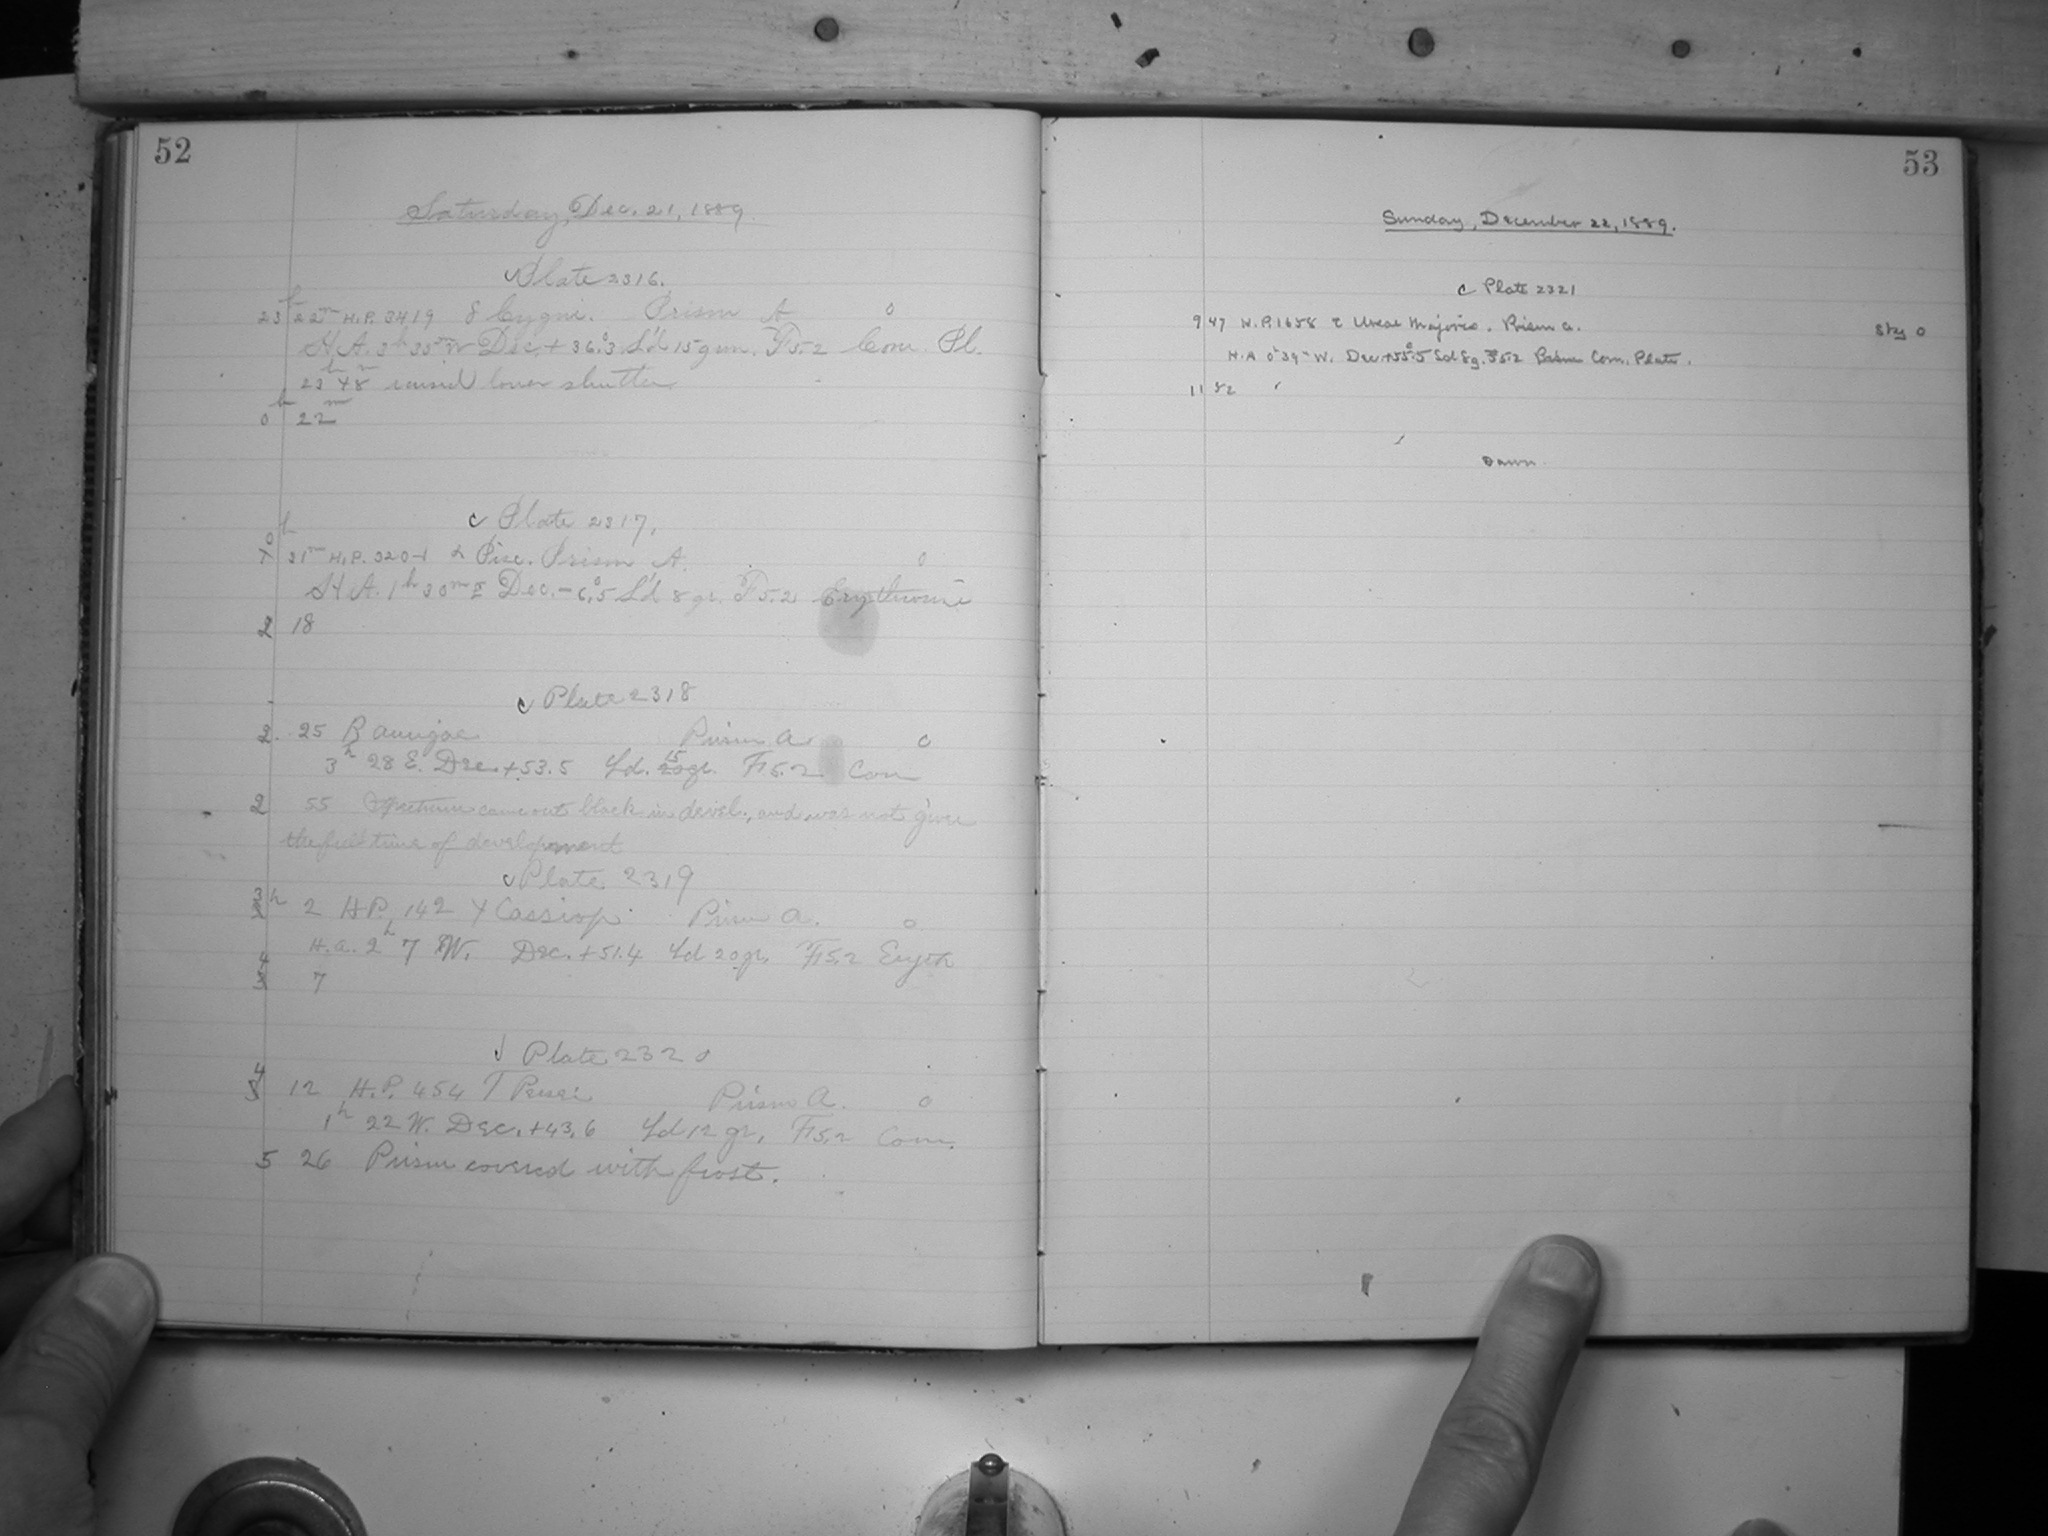 52
Saturday, Dec. 21, 1889.
c Plate 2316.
23h 22m H.P. 3419 δ Cygni. Prism A 0
H.A. 3h 35m W Dec. + 36.°3 S'd 15 gm. F 5.2 Com. Pl.
23h 48m raised lower shutter
0h 22m
c Plate 2317.
0h 31m H.P. 320 α Pisc. Prism A. 0
H.A. 1h 30m E Dec. - 6.°5 S'd 8 gr. F 5.2 Erythrosine
2 18
c Plate 2318
2 25 β Aurigae Prism A. 0
3h 28 E. Dec. +53.5 Sd. 15 gr. F 5.2 Com
2 55 Spectrum came out black in devel., and was not given
the full time of development
c Plate 2319
3h 2 H.P. 142 γ Cassiop. Prism A. 0
H.A. 2h 7 W. Dec. +51.4 Sd 20 gr. F 5.2 Eryth
7
Plate 2320
4 12 H.P. 454 τ Persei Prism A. 0
1h 22 W. Dec. +43.6 Sd 12 gr. F 5.2 Com.
5 26 Prism covered with frost.
53
Sunday, December 22, 1889.
c Plate 2321
9 47 H.P. 1658 Ursae Majoris. Prism A. Sky 0
H.A 0h 39m W. Dec +55.°5 Sd 8 g. F 5.2 Com. Plate.
11 52
Dawn.